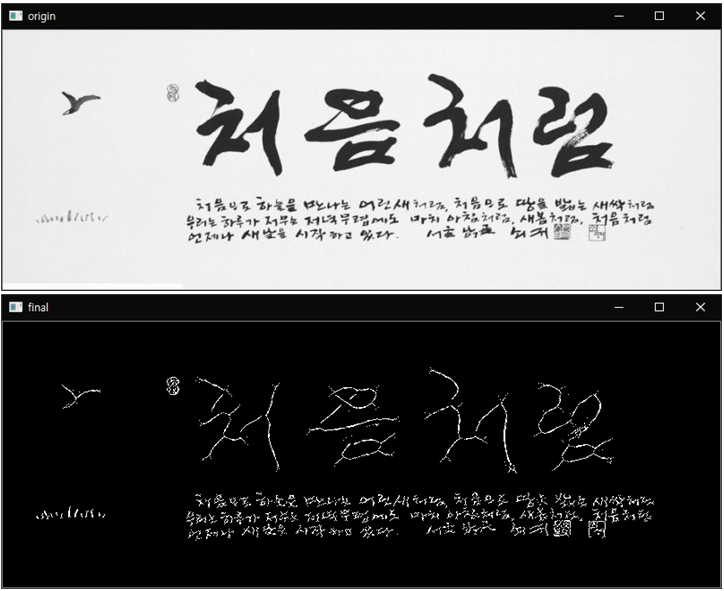 origin
처음처럼
처음으로 하늘을 만나는 어린새처럼, 처음으로 땅을 밟는 새싹처럼
우리는 하루가 저무는 저녁무렵에도 마치 아침처럼, 새봄처럼, 처음처럼
언제나 새날을 시작하고 있다.
final
처음처럼
처음으로 하늘을 만나는 어린새처럼, 처음으로 땅을 밟는 새싹처럼
우리는 하루가 저무는 저녁무렵에도 마치 아침처럼, 새봄처럼, 처음처럼
언제나 새날을 시작하고 있다.